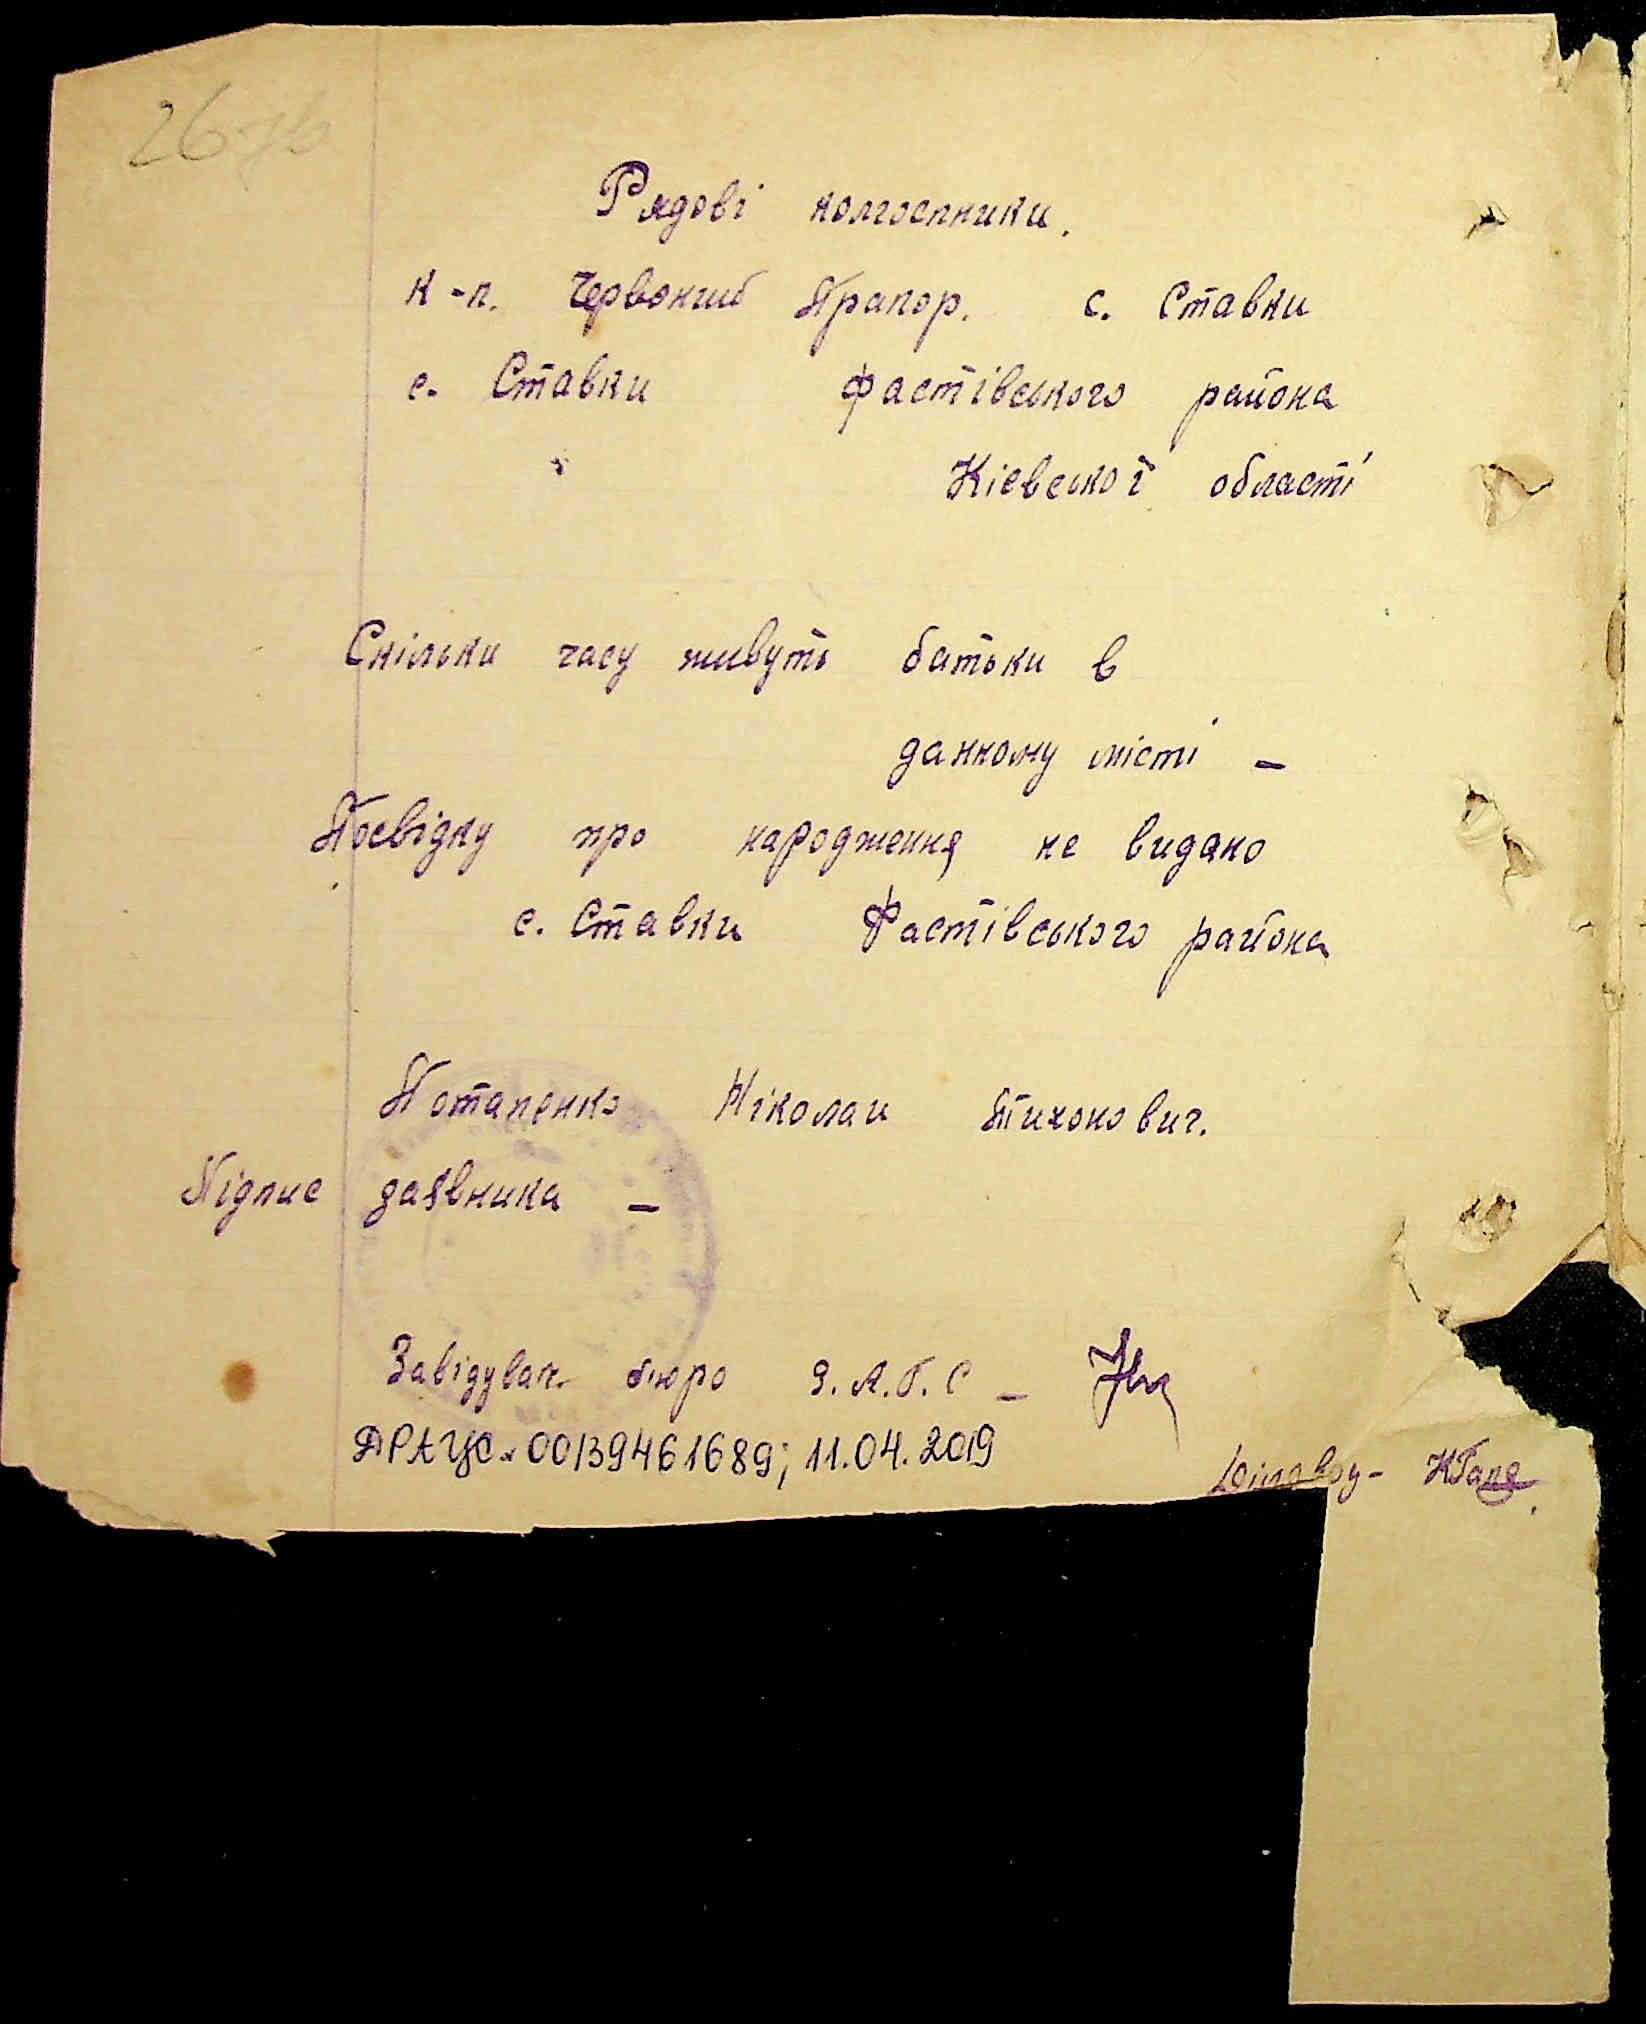 26
Рядові колгоспники.
к-п. Червоний Прапор. с. Ставки
с. Ставки Фастівського района
Кіевської області
Скільки часу живуть батьки в
данному місті –
Посвідку про народження не видано
с. Ставки Фастівського района
Потапенко Ніколаи Тихонович.
Підпис даявника –
Завідувач. бюро З.А.Г.С –
ДРАЦС. 00139461689; 11.04.2019